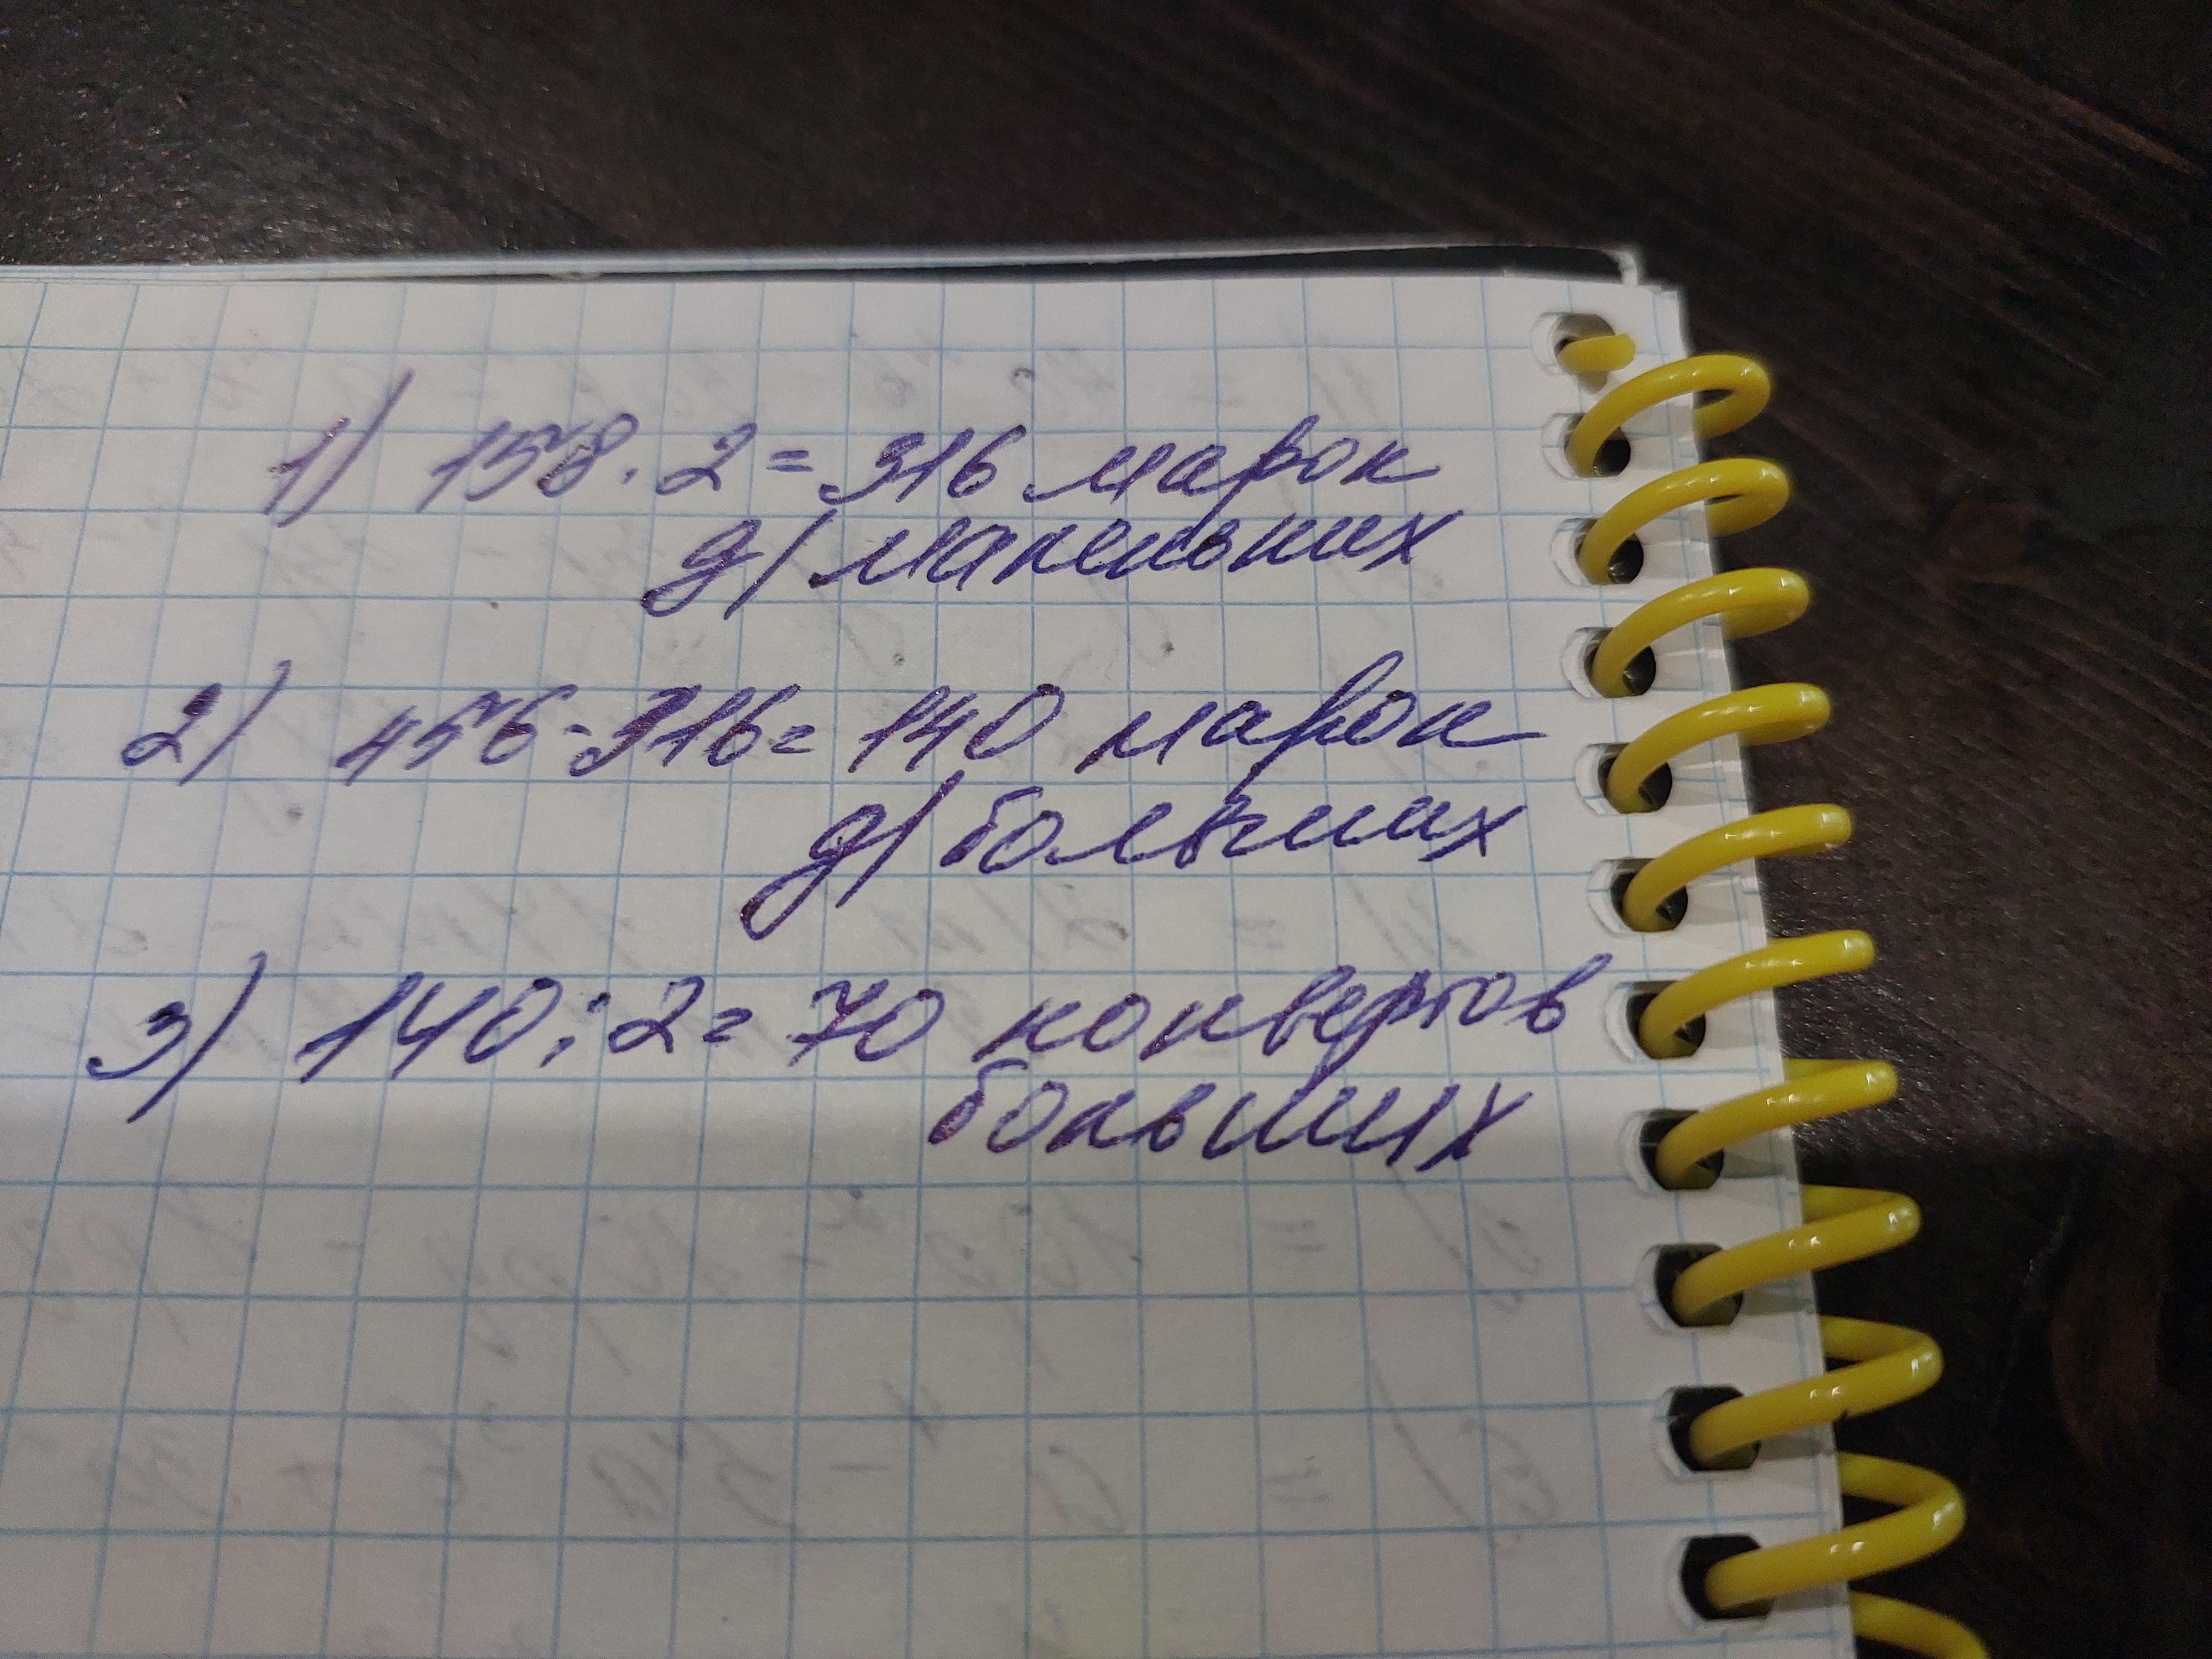 1) 158 · 2 = 316 марок
д/макеньких
2) 456 - 316 = 140 марок
д/больших
3) 140 : 2 = 70 конвертов
больших